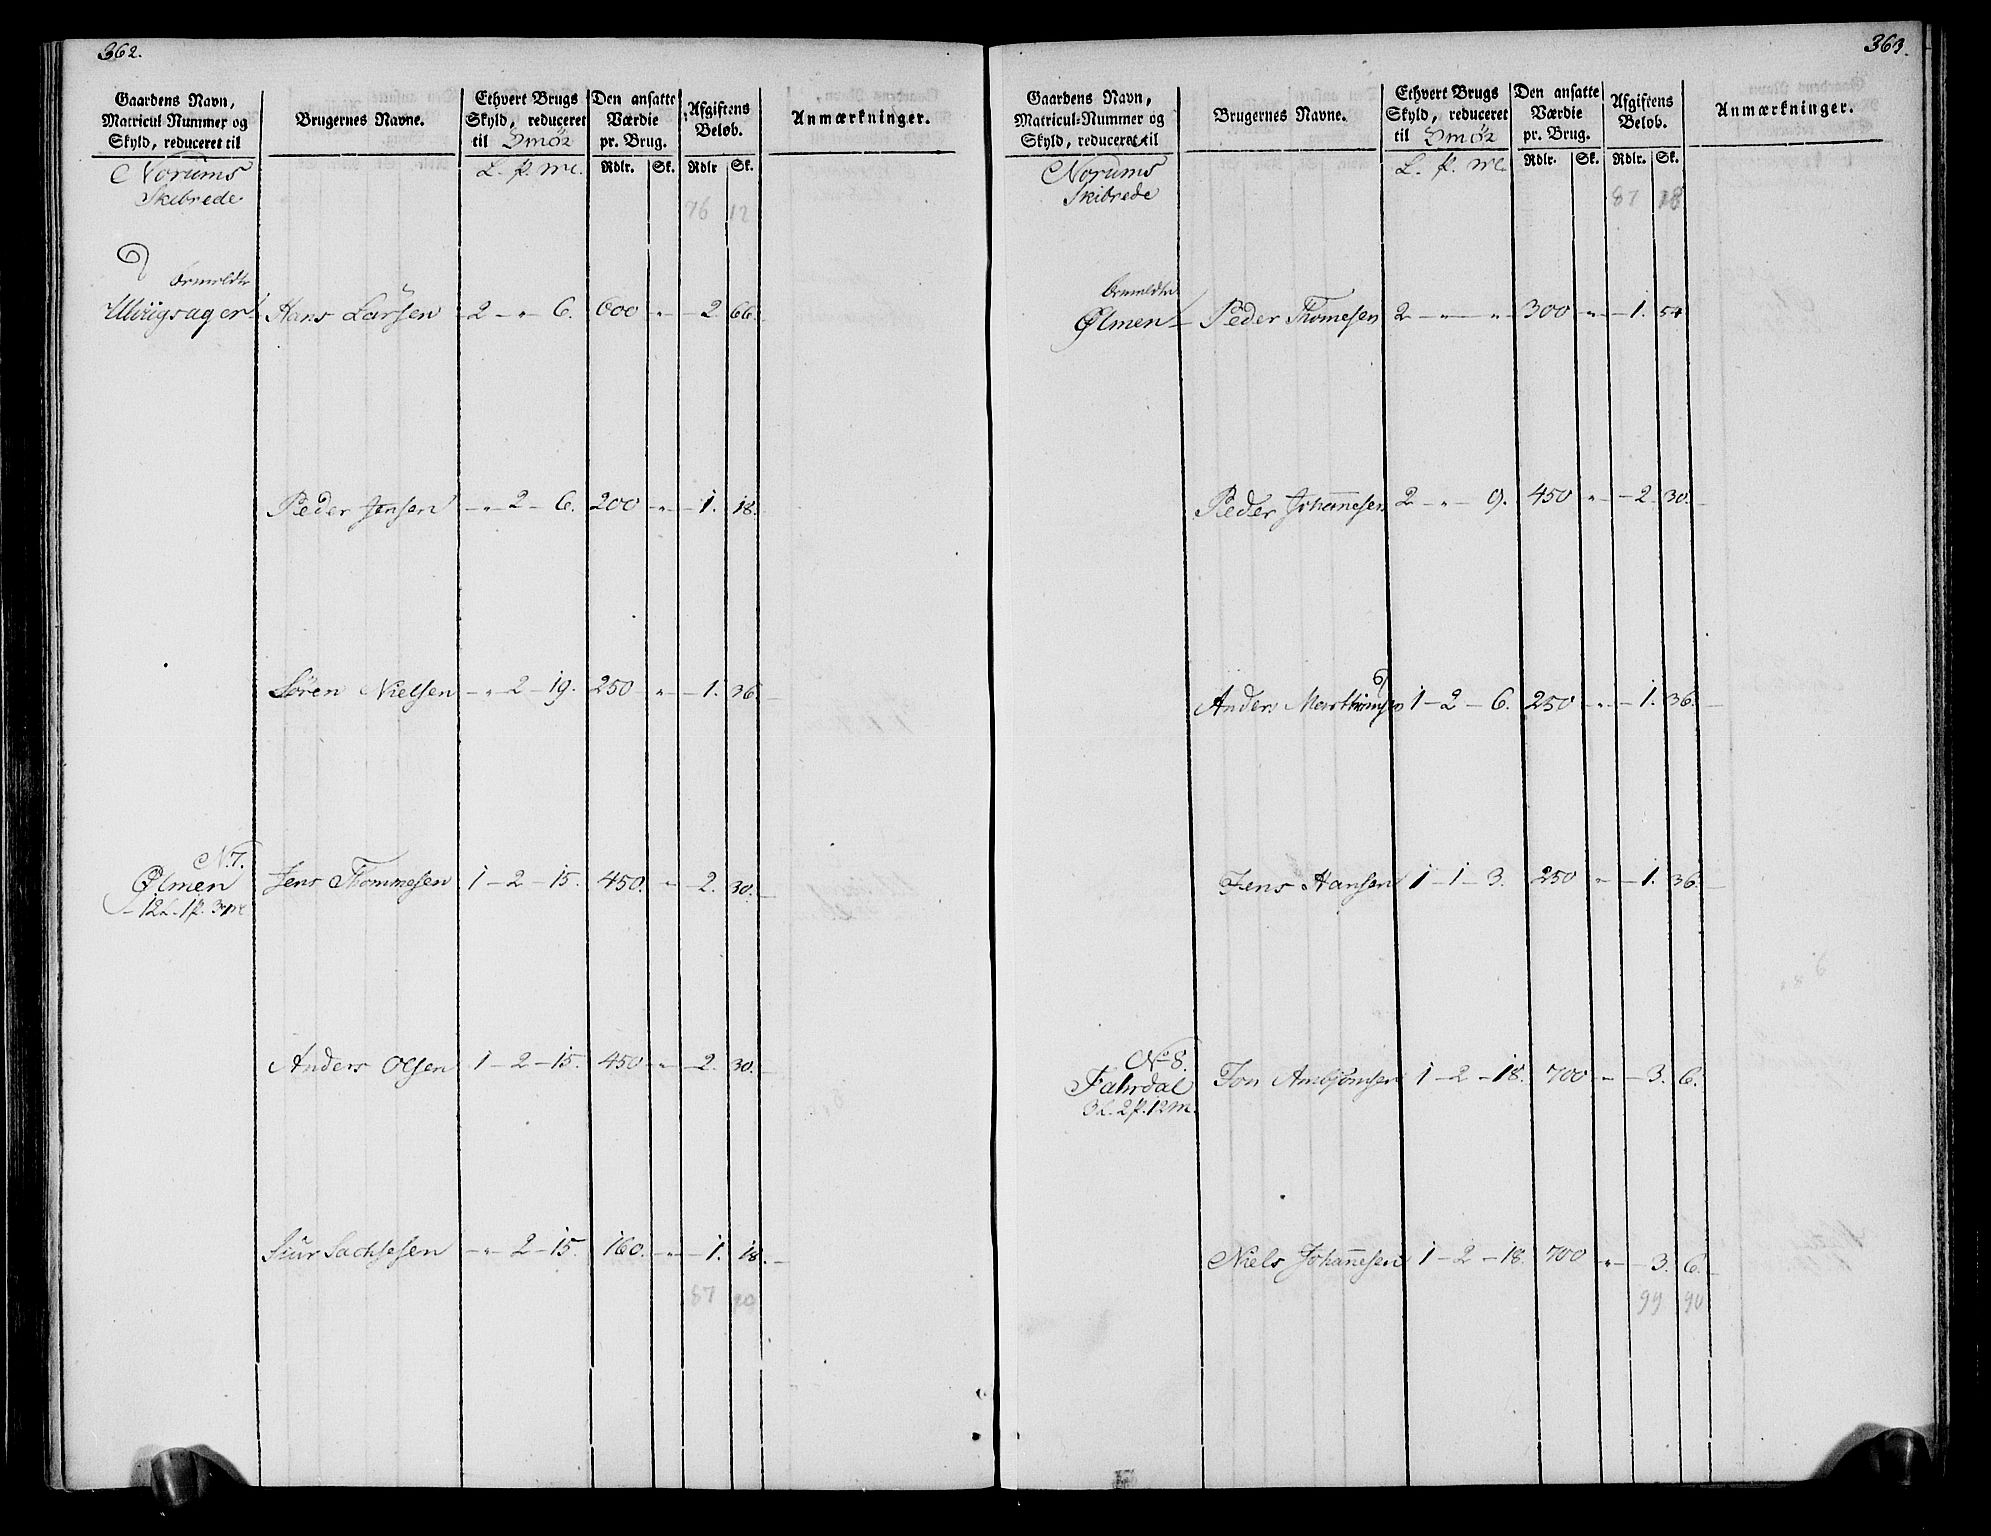 362.
Gaardens Navn, Matricul-Nummer og Skyld, reduceret til
Brugernes Navne.
Ethvert Brugs Skyld, reduceret til Smör
Den ansatte Værdie pr. Brug.
Afgiftens Beløb.
Anmærkninger.
Norums Skibrede
L. p. mc.
Rdlr. Sk. Rdlr Sk.
76 12
Ormeldte
Hans Larsen 2 - " - 6. 600 " - 2. 66.
Peder Jensen - " - 2 - 6. 200 - " - 1. 18.
Sören Nielsen - " - 2 - 19. 250 " - 1. 36.
N. 7.
Ølmen Jens Thommesen 1 - 2 - 15. 450. " - 2. 30.
Anders Olsen 1 - 2 - 15. 450 - " - 2. 30.
Siur Sachsesen - " - 2 - 15. 160. - " - 1. 18.
363.
Gaardens Navn, Matricul-Nummer og Skyld, reduceret til
Brugernes Navne.
Ethvert Brugs Skyld, reduceret til Smör
Den ansatte Værdie pr. Brug.
Afgiftens Beløb.
Anmærkninger.
Norums Skibrede
L. p. mc.
Rdlr. Sk. Rdlr. Sk.
87 18
Ormeldte
Ølmen Peder Thomesen 2 - " - " - 300 - " - 1. 54
Peder Johannesen 2 - " - 9. 450 " - 2. 30.
Anders 1 - 2 - 6. 250 - " - 1. 36.
Jens Hansen 1 - 1 - 3. 250 " - 1. 36.
No 8.
Fahrdal Jon Ambjörnsen 1 - 2 - 18. 700 " - 3. 6.
3 L. 2 p. 12 m.
Niels Johannesen 1 - 2 - 18. 700 - " - 3. 6.
99 90